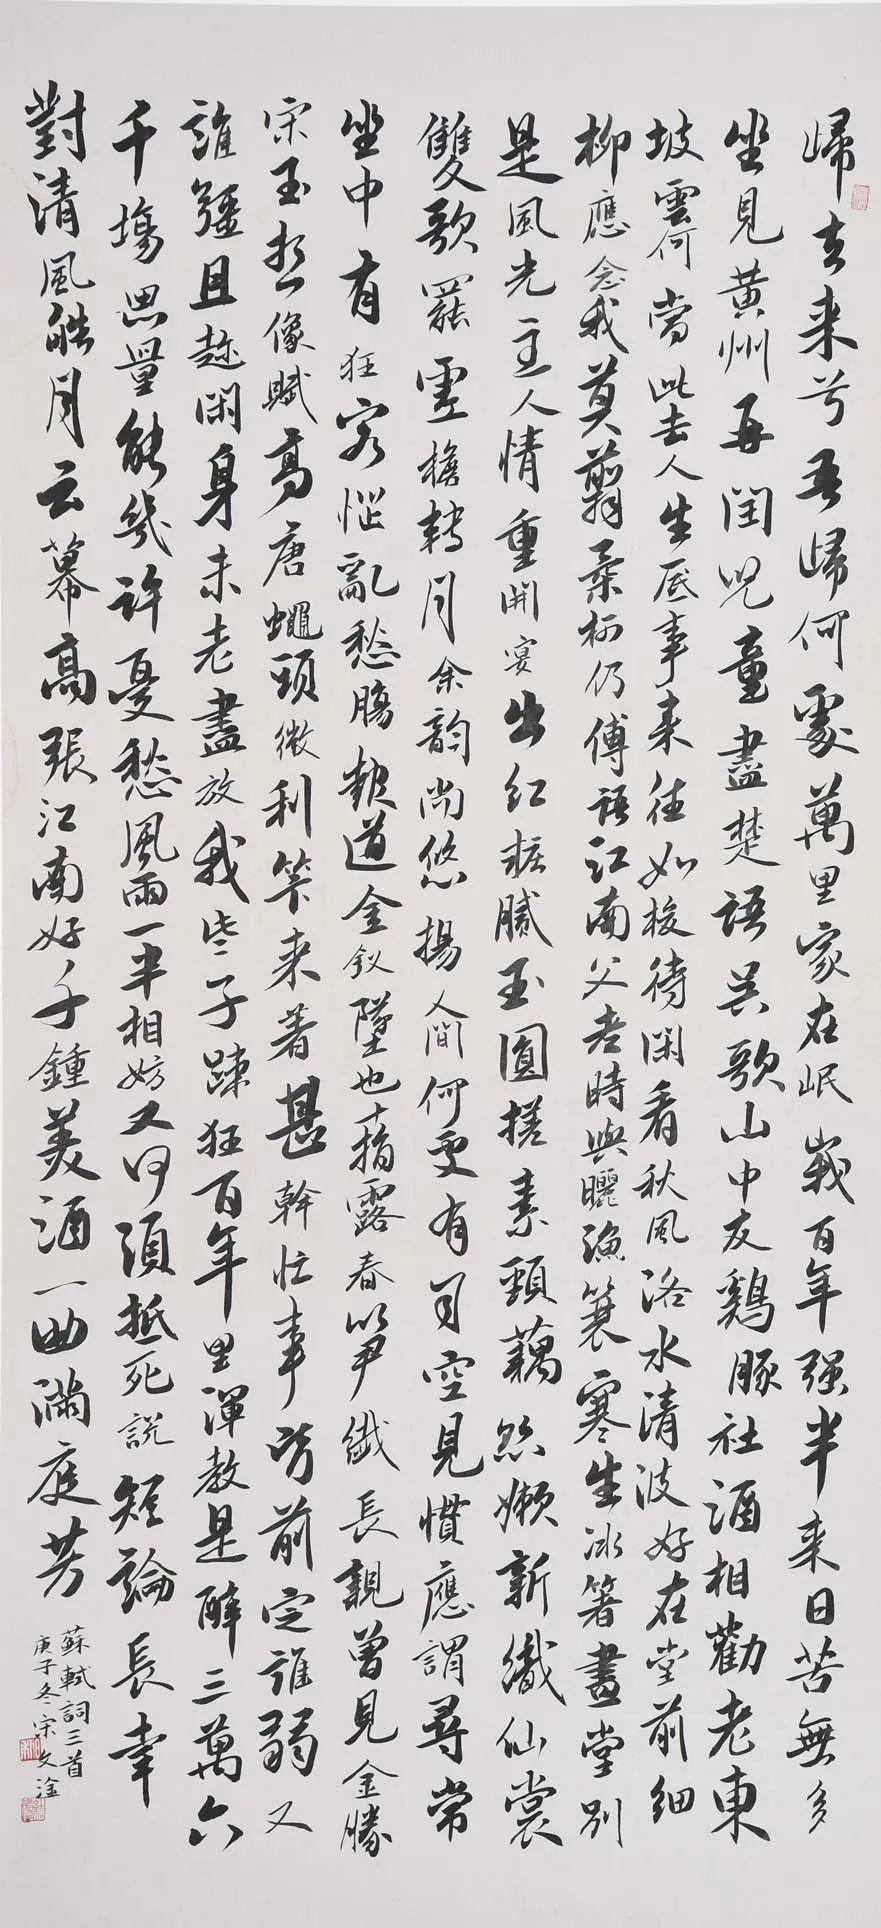 歸去来兮吾歸何處萬里家在岷峩百年强半来日苦無多
坐見黄州再閏兒童盡楚語吴歌山中友鷄豚社酒相勸老東
坡雲何當此去人生底事来往如梭待閑看秋風洛水清波好在堂前細
柳應念我莫翦柔柯仍傳語江南父老時與曬漁蓑寒生冰箸畫堂别
是風光主人情重開宴出红粧膩玉圓搓素頸藕絲嫩新織仙裳
雙歌罷虚檐轉月余韵尚悠揚人間何處有司空見慣應謂尋常
坐中有狂客惱亂愁腸報道金釵墜也十指露春筍纖長親曾見全勝
宋玉想像賦高唐蠅頭微利算来着甚幹忙事皆前定誰弱又
誰彊且趂閑身未老盡放我些子踈狂百年里渾教是醉三萬六
千塲思量能幾許憂愁風雨一半相妨又何須抵死説短論長幸
對清風皓月云幕高張江南好千鍾美酒一曲滿庭芳
蘇軾詞三首
庚子冬宋文淦